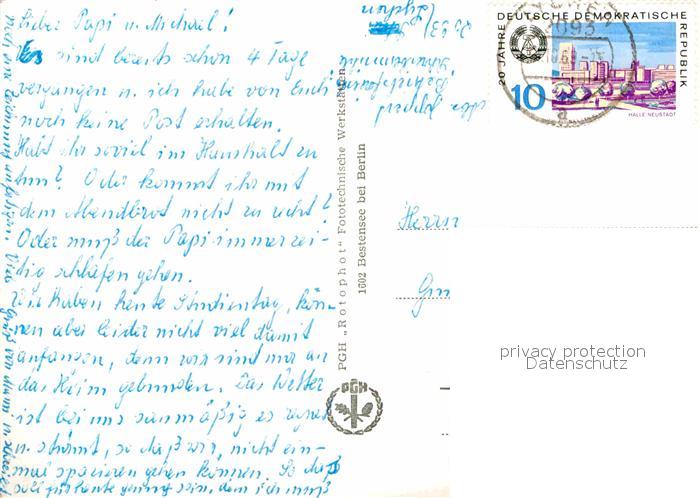 Lieber Papi u. Michael!
Es sind bereits schon 4 Tage
vergangen u. ich habe von Euch
noch keine Post erhalten.
Habt ihr soviel im Haushalt zu
tun? Oder kommt ihr mit
dem Abendbrot nicht zu recht?
Oder muß der Papi immer zei-
tig schlafen gehen.
Wir haben heute Studientag, kön-
nen aber leider nicht viel damit
anfangen, denn wir sind nur an
das Heim gebunden. Das Wetter
ist bei uns saumäßig es regnet
u. stürmt, so daß wir nicht ein-
mal spazieren gehen können. So das
soll für heute genug sein, denn ich muß
noch eine anfertigen. Viele Grüße von
PGH „Rotophot" Fototechnische Werkstätten
1602 Bestensee bei Berlin
PGH
20 JAHRE DEUTSCHE DEMOKRATISCHE REPUBLIK
10
HALLE-NEUSTADT
Herrn
privacy protection
Datenschutz